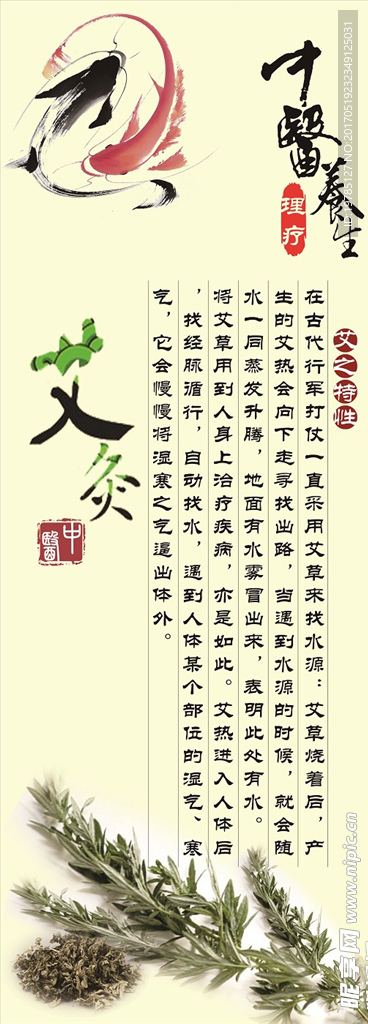 中醫養生
理疗
艾之特性
在古代行军打仗一直采用艾草来找水源：艾草烧着后，产
生的艾热会向下走寻找出路，当遇到水源的时候，就会随
水一同蒸发升腾，地面有水雾冒出来，表明此处有水。
将艾草用到人身上治疗疾病，亦是如此。艾热进入人体后
，找经脉循行，自动找水，遇到人体某个部位的湿气、寒
气，它会慢慢将湿寒之气逼出体外。
艾灸
中醫
昵享网 www.nipic.cn